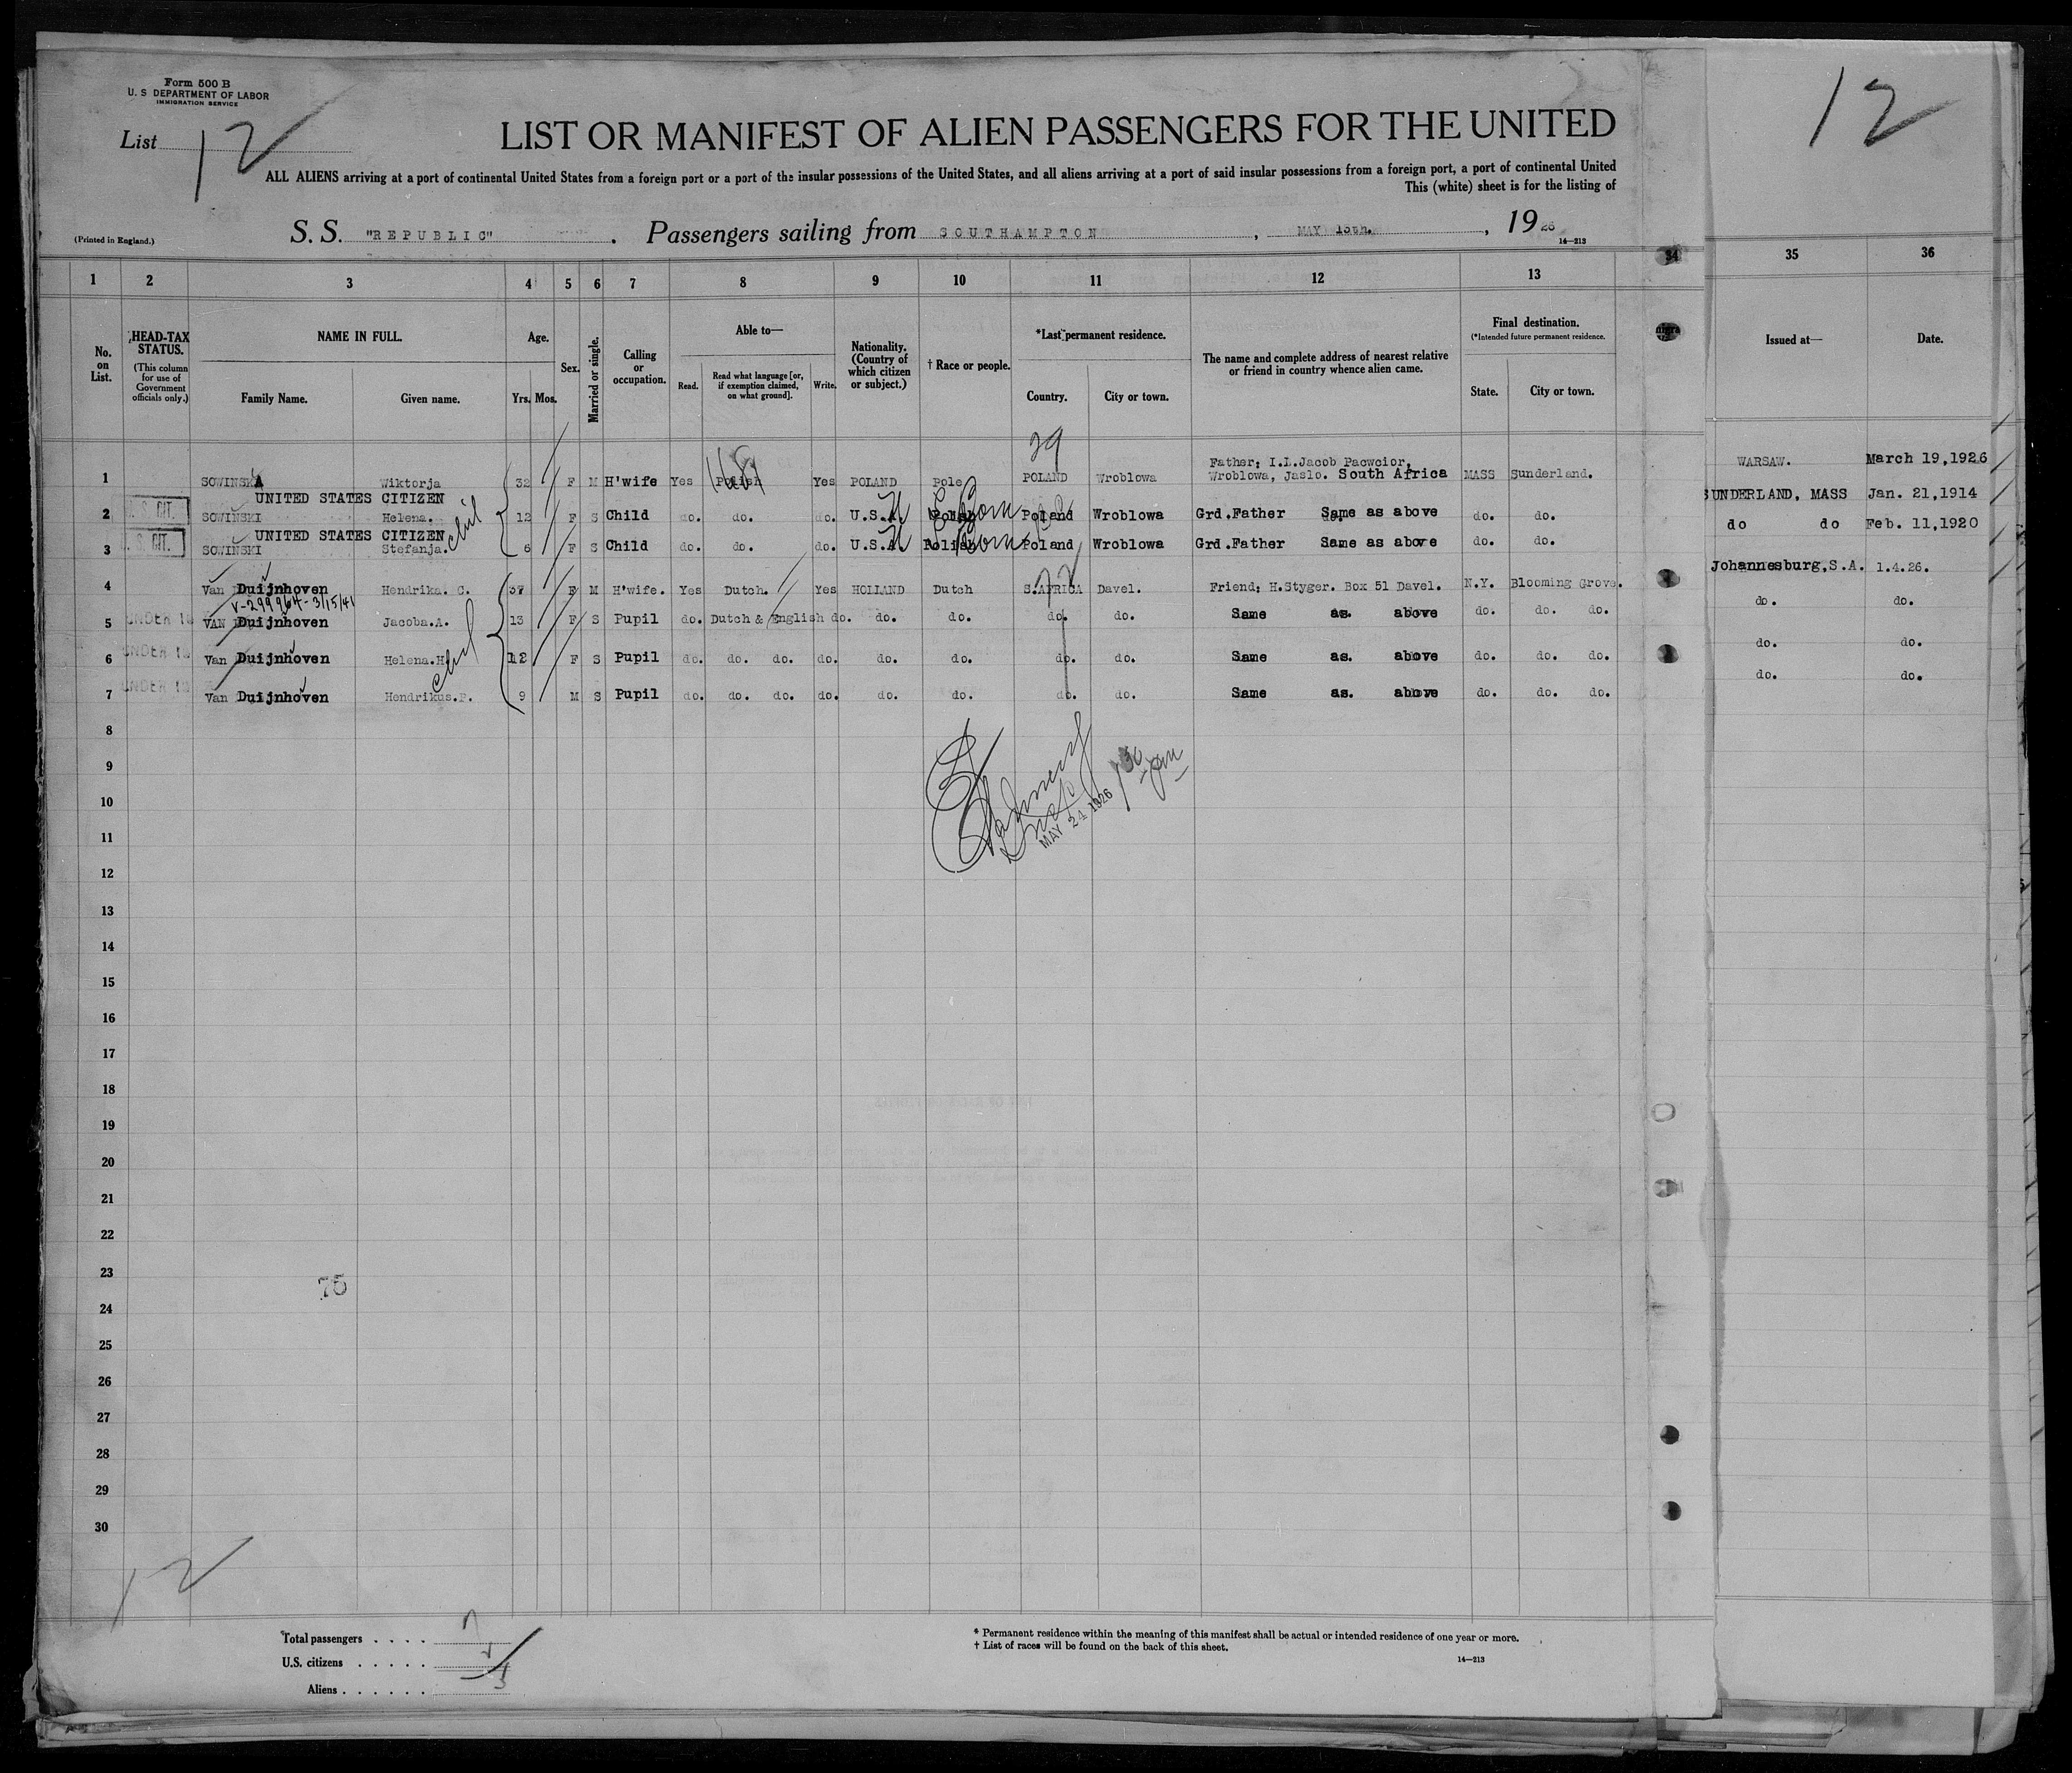 Form 500 B
U. S DEPARTMENT OF LABOR
IMMIGRATION SERVICE
List 12
12
LIST OR MANIFEST OF ALIEN PASSENGERS FOR THE UNITED
ALL ALIENS arriving at a port of continental United States from a foreign port or a port of the insular possessions of the United States, and all aliens arriving at a port of said insular possessions from a foreign port, a port of continental United
This (white) sheet is for the listing of
(Printed in England.)
S. S. "REPUBLIC" . Passengers sailing from SOUTHAMPTON , MAY 15th. , 1926
14—213
1 2 3 4 5 6 7 8 9 10 11 12 13 34 35 36
No. on List.
HEAD-TAX STATUS.
(This column for use of Government officials only.)
NAME IN FULL.
Family Name. Given name.
Age.
Yrs. Mos.
Sex.
Married or single.
Calling or occupation.
Able to—
Read. Read what language [or, if exemption claimed, on what ground]. Write.
Nationality. (Country of which citizen or subject.)
† Race or people.
*Last permanent residence.
Country. City or town.
The name and complete address of nearest relative or friend in country whence alien came.
Final destination.
(*Intended future permanent residence.
State. City or town.
Issued at— Date.
29
Father; I.L.Jacob Pacwcior,
1 SOWINSKA Wiktorja 32 F M H'wife Yes Polish Yes POLAND Pole POLAND Wroblowa Wroblowa, Jaslo. South Africa MASS Sunderland. WARSAW. March 19,1926
UNITED STATES CITIZEN
2 U. S. CIT. SOWINSKI Helena. 12 F S Child do. do. do. U.S.A. Polish Poland Wroblowa Grd.Father Same as above do. do. SUNDERLAND, MASS Jan. 21,1914
UNITED STATES CITIZEN
3 U. S. CIT. SOWINSKI Stefanja. 6 F S Child do. do. do. U.S.A. Polish Poland Wroblowa Grd.Father Same as above do. do. do do Feb. 11,1920
4 Van Duijnhoven Hendrika. C. 37 F M H'wife. Yes Dutch. Yes HOLLAND Dutch S.AFRICA Davel. Friend; H.Styger. Box 51 Davel. N.Y. Blooming Grove. Johannesburg,S.A. 1.4.26.
V-299964-3/15/41
5 UNDER 16 VAN Duijnhoven Jacoba.A. 13 F S Pupil do. Dutch & English do. do. do. do. do. Same as. above do. do. do. do. do.
6 UNDER 16 Van Duijnhoven Helena.H. 12 F S Pupil do. do. do. do. do. do. do. do. Same as. above do. do. do. do. do.
7 UNDER 16 Van Duijnhoven Hendrikus.P. 9 M S Pupil do. do. do. do. do. do. do. do. Same as. above do. do. do. do. do.
8
9
10
MAY 24 1926
1 30 pm
11
12
13
14
15
16
17
18
19
20
21
22
23
75
24
25
26
27
28
29
30
12
Total passengers . . . . 7
U.S. citizens . . . . .
Aliens . . . . . .
* Permanent residence within the meaning of this manifest shall be actual or intended residence of one year or more.
† List of races will be found on the back of this sheet.
14—213